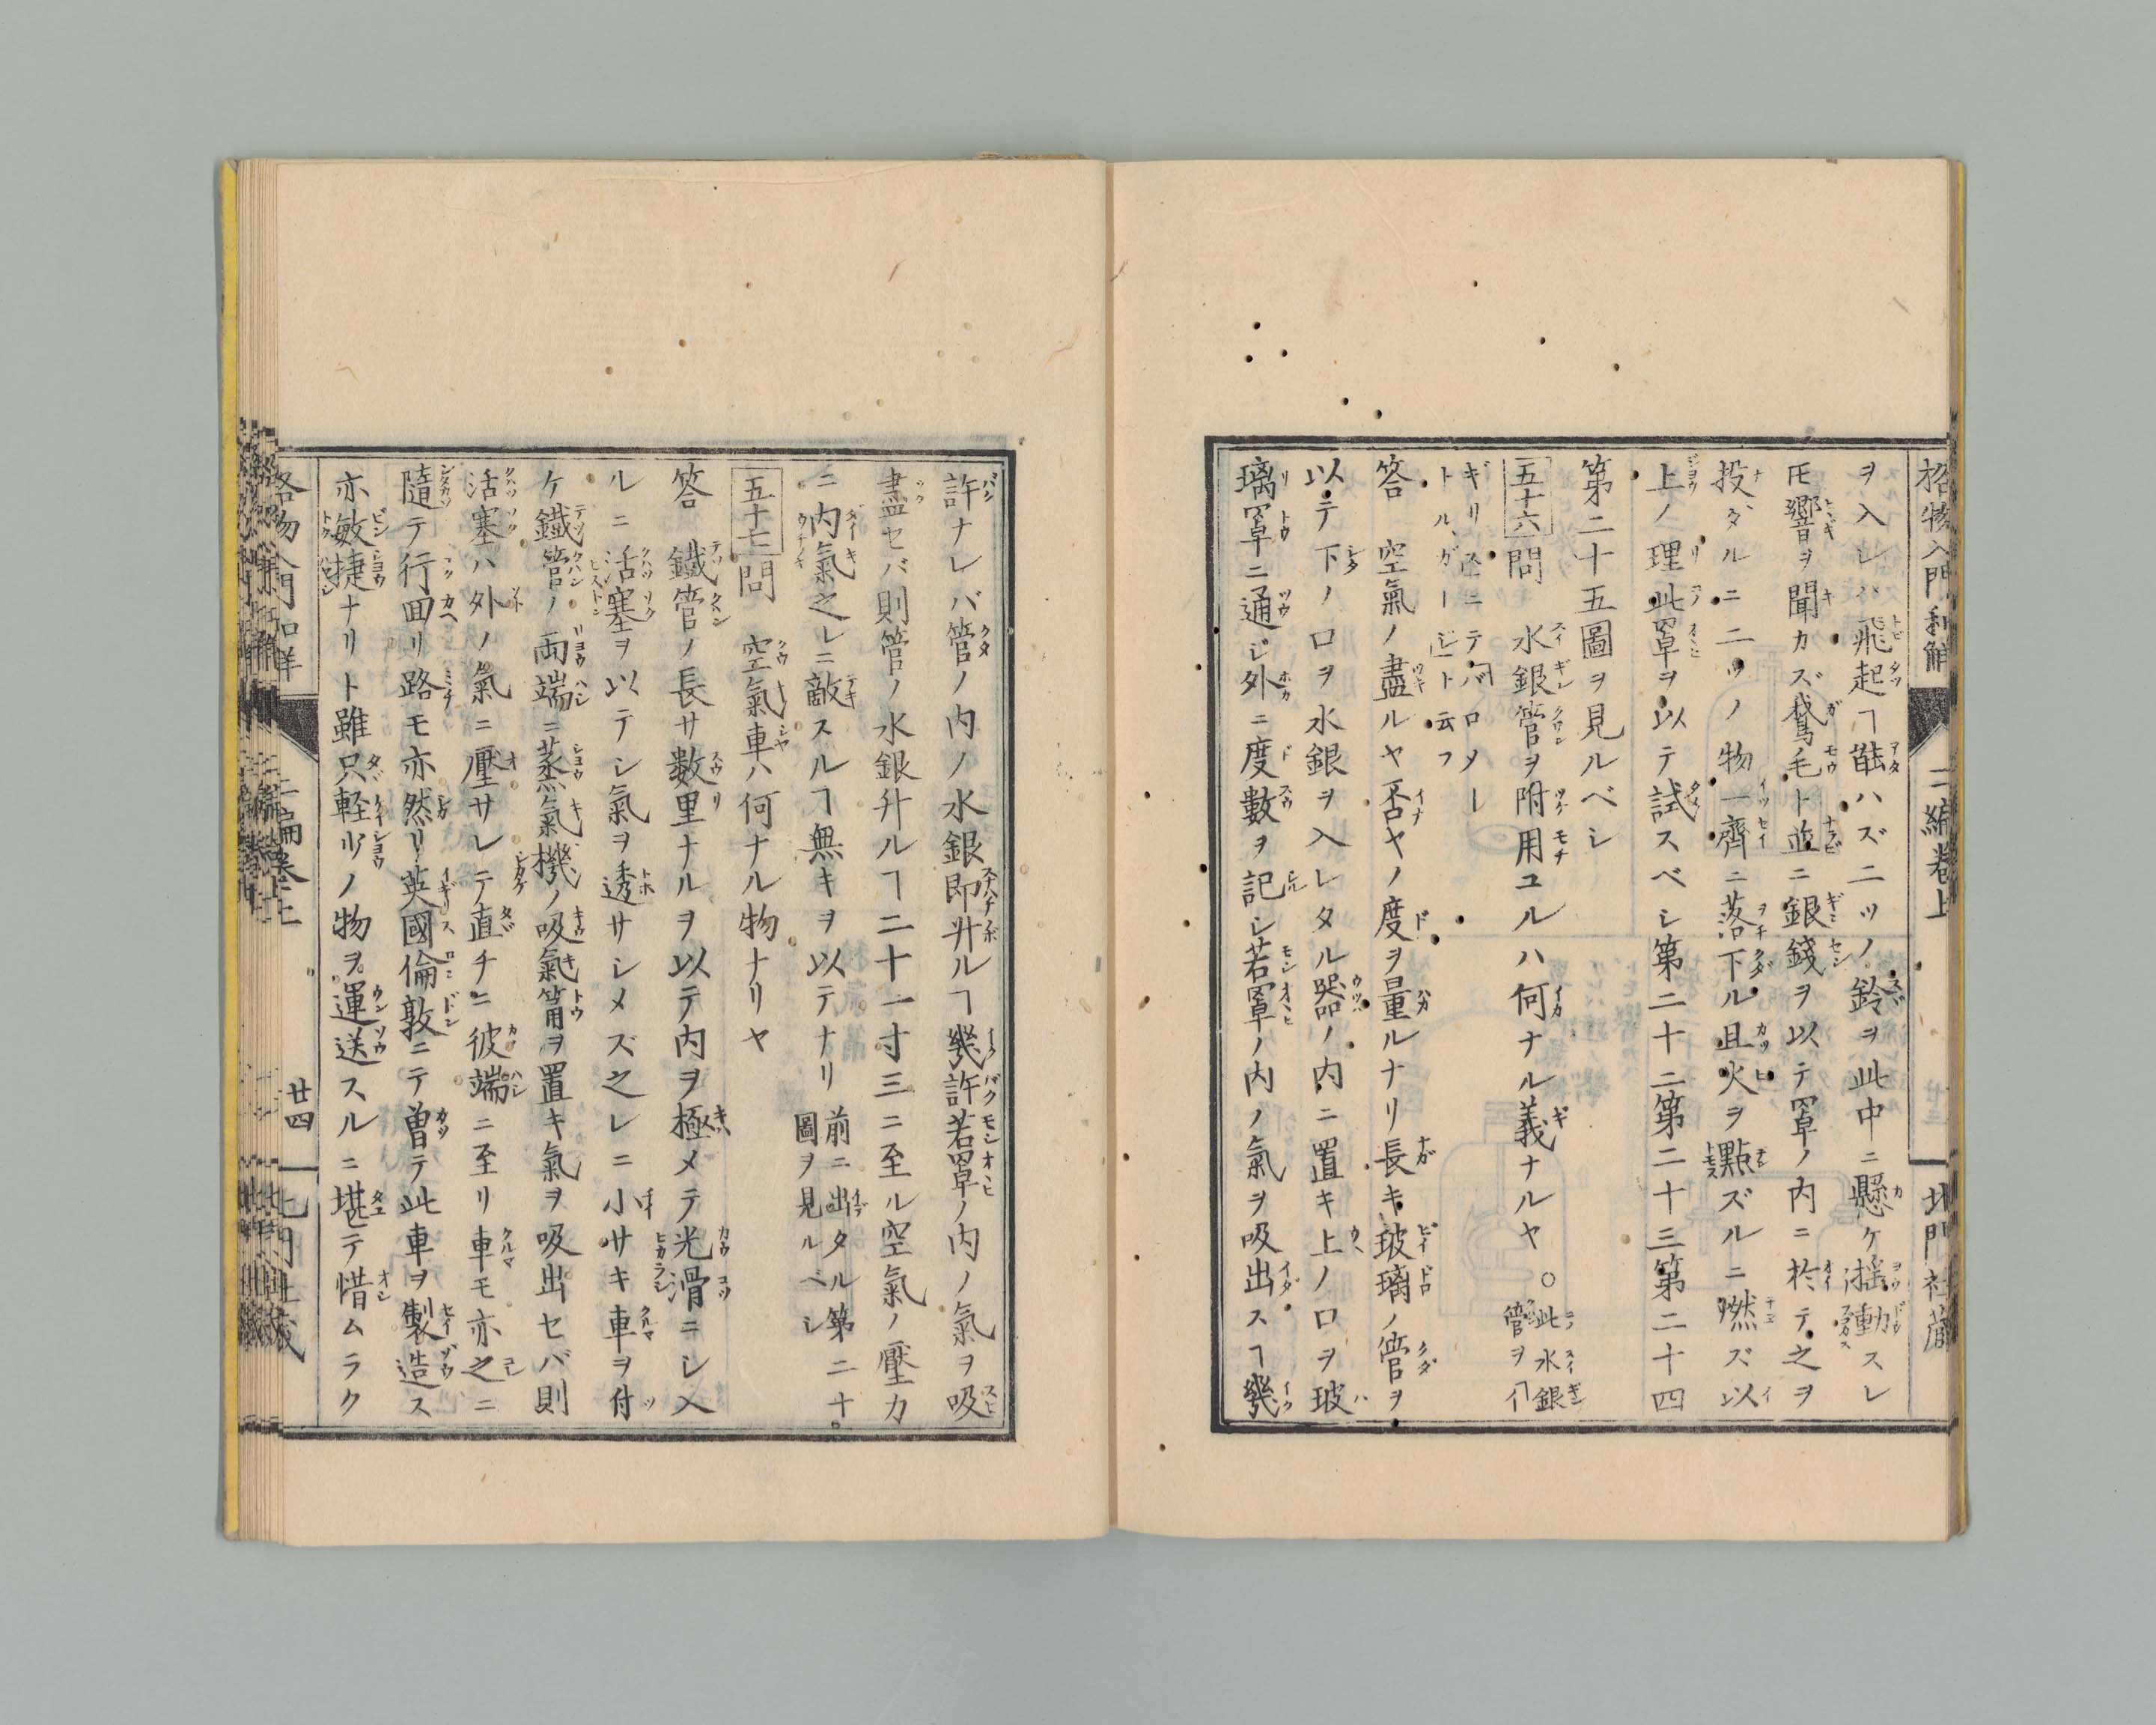 格物入門和解 二編卷上 北門社蔵
ヲ入レハ飛起ヿ能ハズ二ツノ鈴ヲ此中ニ懸ケ揺動スレ
𪜈響ヲ聞カズ鵞毛ト並ニ銀錢ヲ以テ罩ノ内ニ於テ之ヲ
投タルニ二ツノ物一齊ニ落下ル且火ヲ點ズルニ燃ズ以
上ノ理此罩ヲ以テ試スベシ第二十二第二十三第二十四
第二十五圖ヲ見ルベシ
五十六 問 水銀管ヲ附用ユルハ何ナル義ナルヤ ○此水銀
管ヲ「イ
ギリスニテバロメー
トル、ガージ」ト云フ
答 空氣ノ盡ルヤ否ヤノ度ヲ量ルナリ長キ玻璃ノ管ヲ
以テ下ノ口ヲ水銀ヲ入レタル器ノ内ニ置キ上ノ口ヲ玻
璃罩ニ通ジ外ニ度數ヲ記シ若罩ノ内ノ氣ヲ吸出スヿ幾
許ナレバ管ノ内ノ水銀即升ルヿ幾許若罩ノ内ノ氣ヲ吸
盡セバ則管ノ水銀升ルヿ二十一寸三ニ至ル空氣ノ壓力
ニ内氣之レニ敵スルヿ無キヲ以テナリ 前ニ出タル第二十
圖ヲ見ルベシ
五十七 問 空氣車ハ何ナル物ナリヤ
答 鐵管ノ長サ数里ナルヲ以テ内ヲ極メテ光滑ニシ入
ルニ活塞ヲ以テシ氣ヲ透サシメズ之レニ小サキ車ヲ付
ケ鐵管ノ兩端ニ蒸氣機ノ吸氣筩ヲ置キ氣ヲ吸出セバ則
活塞ハ外ノ氣ニ壓サレテ直チニ彼端ニ至リ車モ亦之ニ
隨テ行囬リ路モ亦然リ英國倫敦ニテ曽テ此車ヲ製造ス
亦敏捷ナリト雖只軽少ノ物ヲ運送スルニ堪テ惜ムラク
廿四